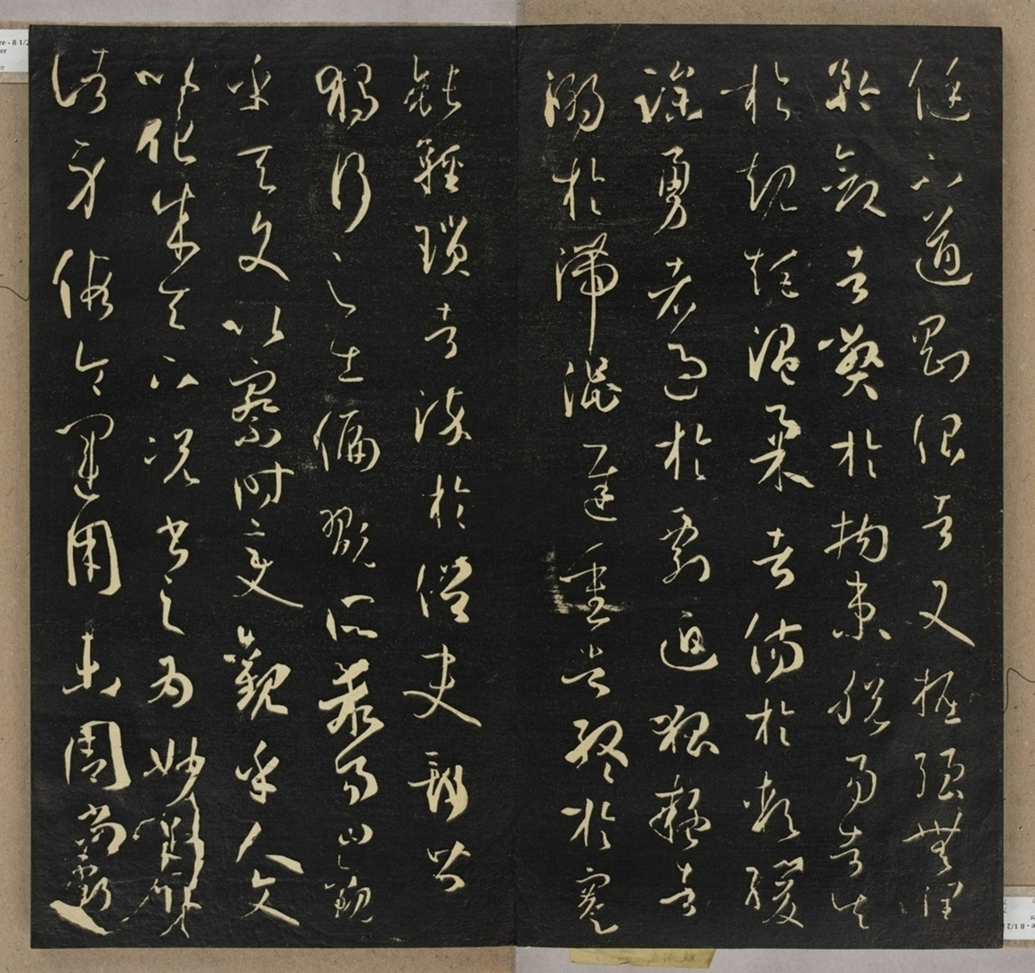 侹不遒剛佷者又掘强無潤
矜斂者弊於拘束脱易者失
於規矩温柔者傷於軟緩
躁勇者過於剽迫狐疑者
溺於滯澀遲重者終於蹇
鈍輕瑣者染於俗吏斯皆
獨行之士偏翫所乖易曰觀
乎天文以察時變觀乎人文
以化成天下況書之為妙近取
諸身假令運用未周尚虧